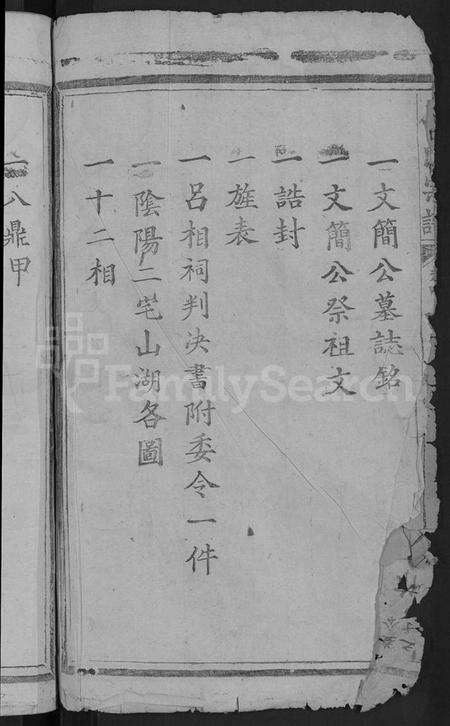 一文簡公墓誌銘
一文簡公祭祖文
一誥封
一旌表
一呂相祠判决書附委令一件
一陰陽二宅山湖各圖
一十二相
一八鼎甲
FamilySearch